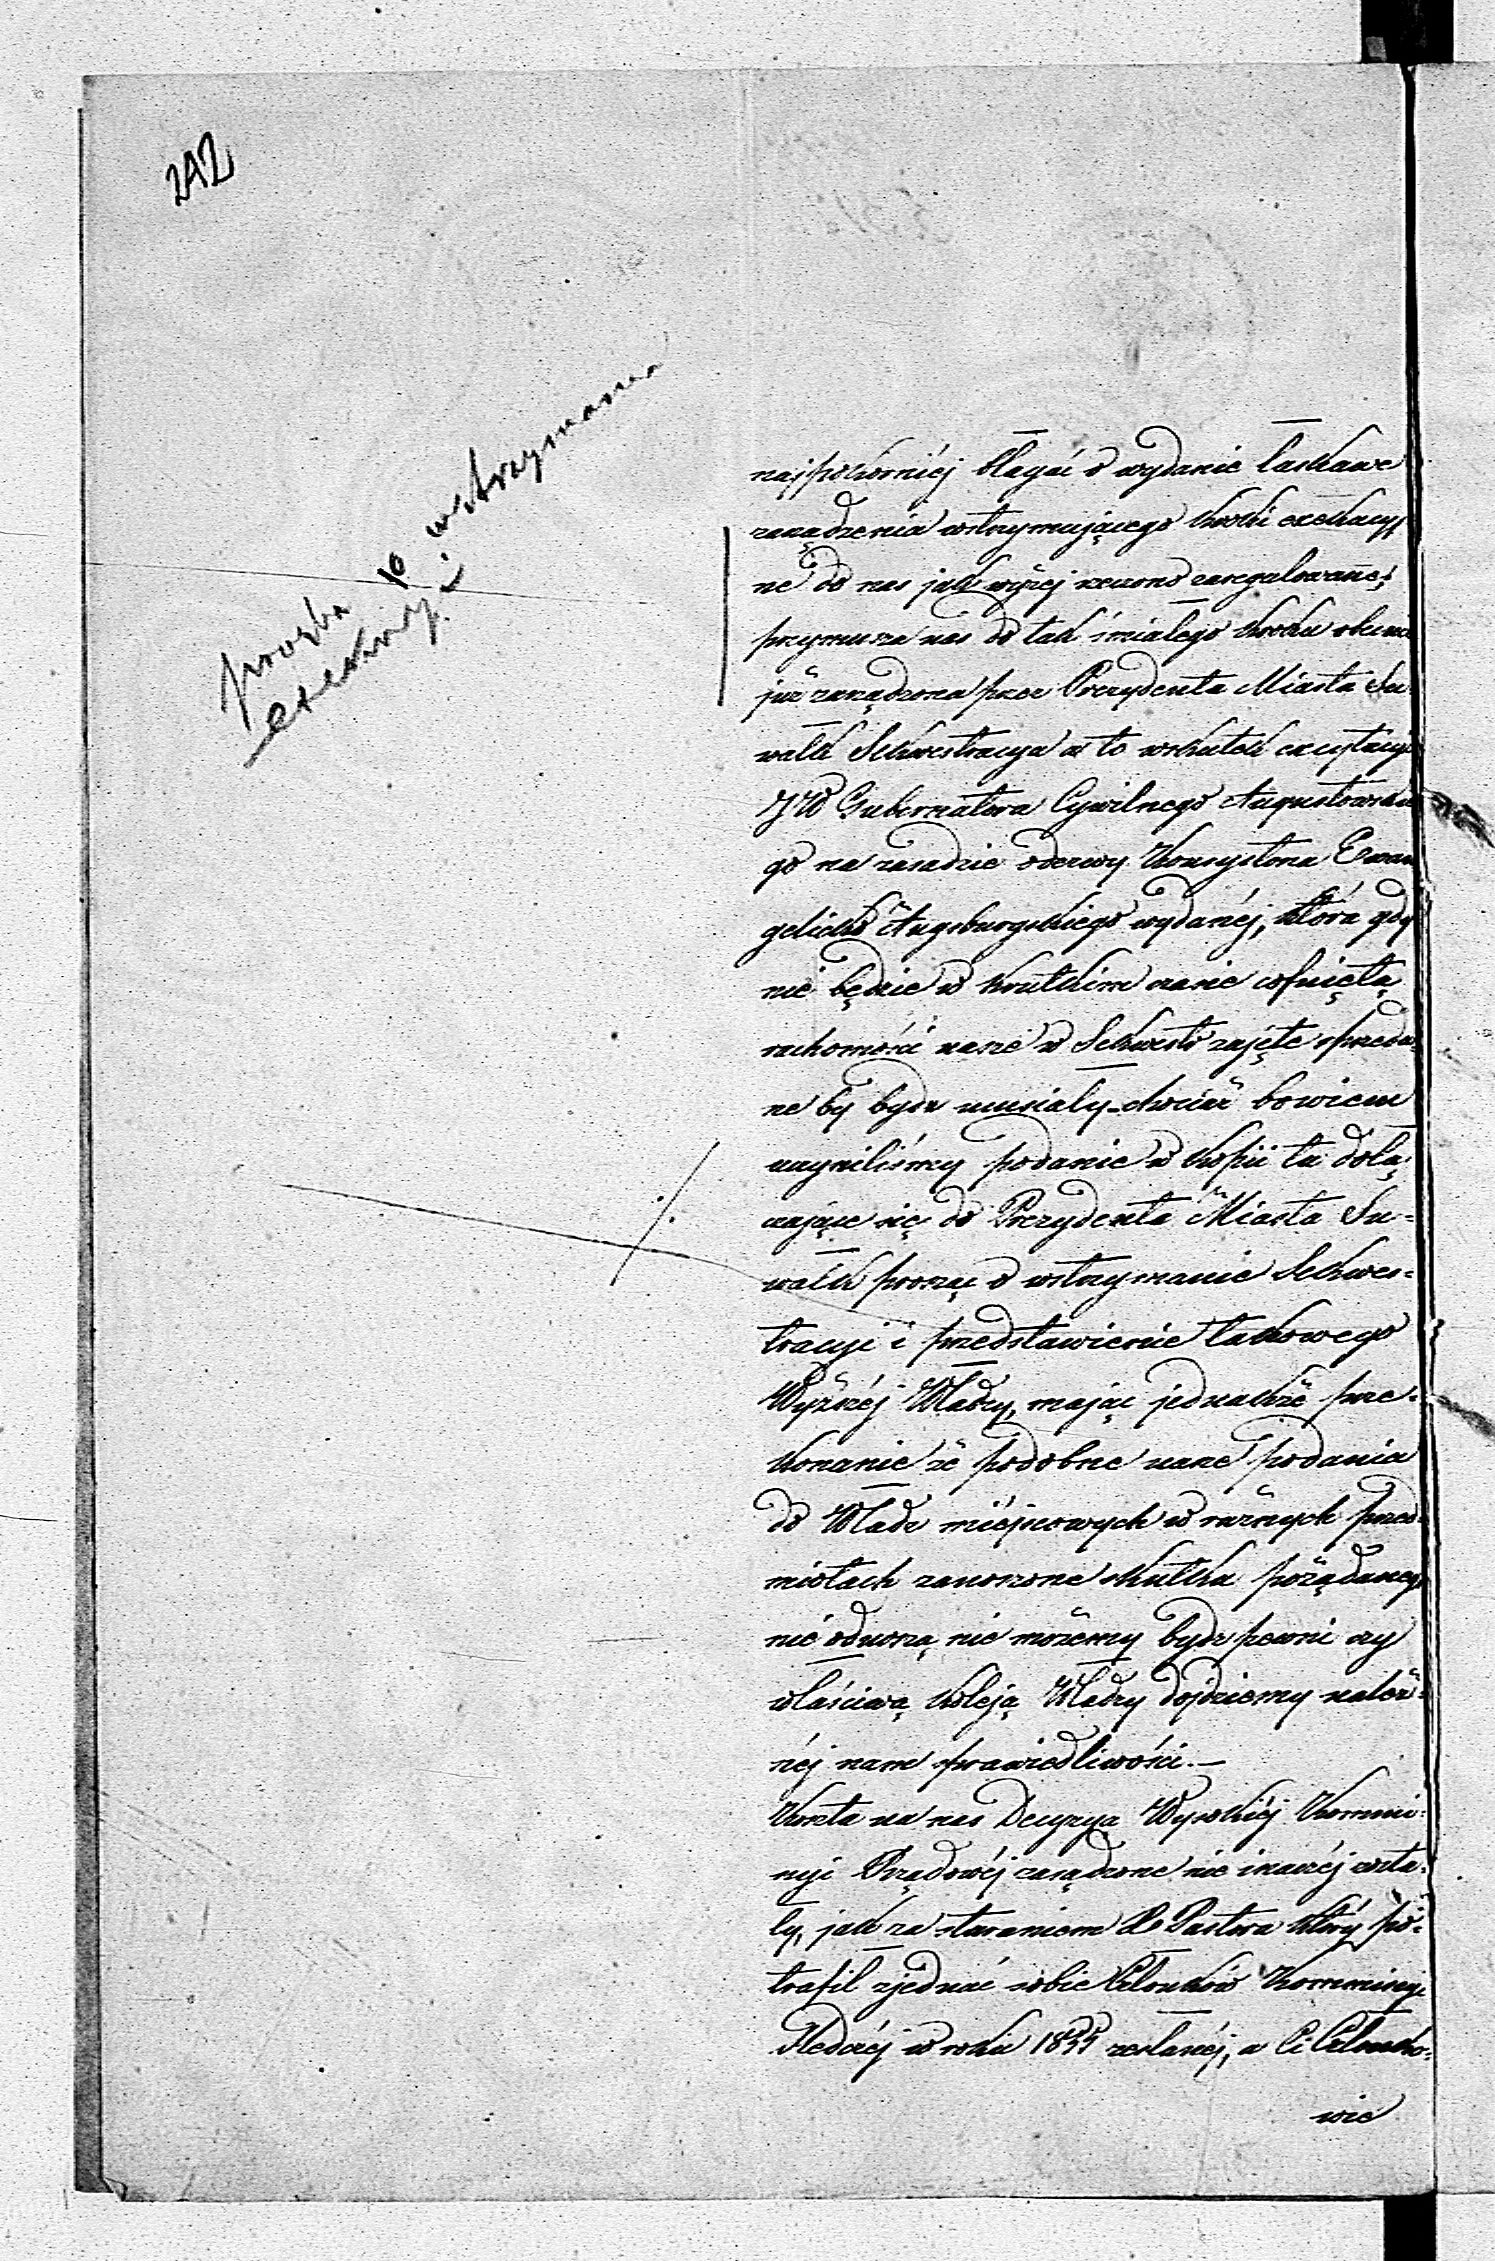 242
prośba o wstrzymanie
exekucyi
najpokorniéj błagać o wydanie łaskawe
zarządzenia wstrzymującego kroki exekucyj
ne do nas jak wyżej rzeczono zaregulowane;
przymusza nas do tak śmiałego kroku obecnie
już zarządzona przez Prezydenta Miasta Su
wałk Sekwestracya a to wskutek excytacyi
JW Gubernatora Cywilnego Augustowskie
go na zasadzie odezwy Konsystorza Ewan
gelicko Augsburgskiego wydanéj, która gdy
nie będzie w krutkim czasie cofniętą
ruchomości nasze w Sekwestr zajęte sprzeda
ne by bydź musiały chociaż bowiem
uczyniliśmy podanie w kopii tu dołą
czające się do Prezydenta Miasta Su-
wałk prosząc o wstrzymanie Sekwes-
tracyi i przedstawienie takowego
Wyższéj Władzy, mając jednakże prze-
konanie że podobne nasze podania
do Władz miéjscowych w różnych przed-
miotach zanoszone skutku pożądanego
nie odnoszą, nie możemy bydź pewni czy
właściwą koleją Władzy dojdziemy należ-
néj nam sprawiedliwości.—
Koszta na nas Decyzyą Wysokiéj Kommi-
syi Rządowéj zasądzone nie inaczéj zosta-
ły, jak za staraniem Pastora który po-
trafił zjednać sobie Członków Kommisyi
Śledczéj w roku 1855 zesłanéj, a Ci Członko-
wie